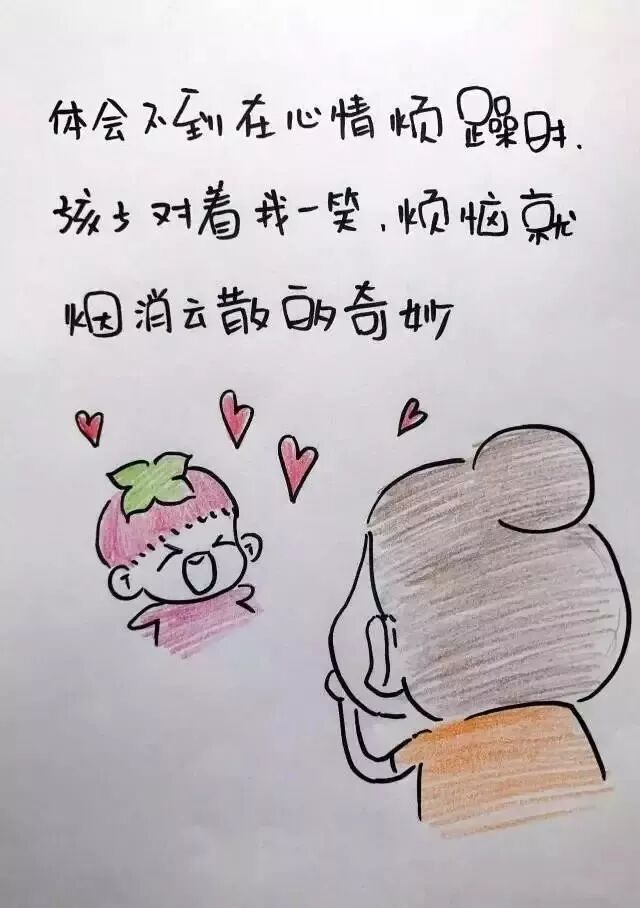 体会不到在心情烦躁时，
孩子对着我一笑，烦恼就
烟消云散的奇妙